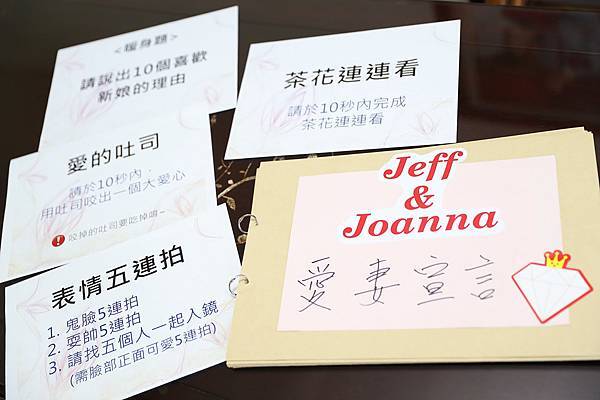 <暖身題>
請說出10個喜歡
新娘的理由
茶花連連看
請於10秒內完成
茶花連連看
愛的吐司
請於10秒內:
用吐司咬出一個大愛心
咬掉的吐司要吃掉唷~
表情五連拍
1. 鬼臉5連拍
2. 耍帥5連拍
3. 請找五個人一起入鏡
(需臉部正面可愛5連拍)
Jeff
&
Joanna
愛妻宣言